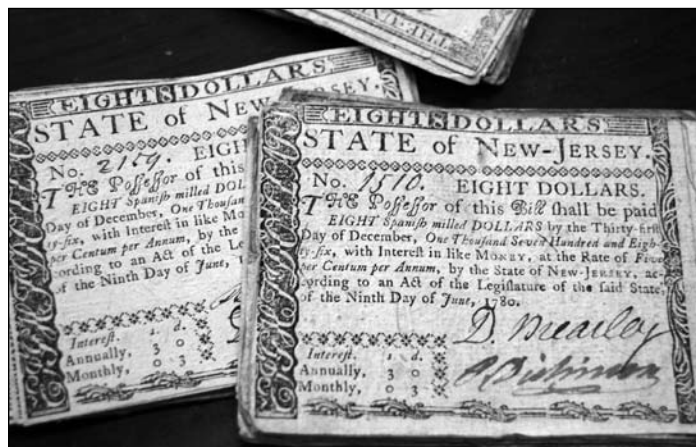 EIGHT 8 DOLLARS
STATE of NEW-JERSEY.
No. 2159. EIGH
THE Poſſeſſor of this
EIGHT Spaniſh milled DOL
Day of December, One Thouſan
ty-ſix, with Intereſt in like Mo
per Centum per Annum, by the
cording to an Act of the Le
of the Ninth Day of June, 1
Intereſt. s. d.
Annually, 3 0
Monthly, 0 3
EIGHT 8 DOLLARS
STATE of NEW-JERSEY.
No. 1510. EIGHT DOLLARS.
THE Poſſeſſor of this Bill ſhall be paid
EIGHT Spaniſh milled DOLLARS by the Thirty-firſt
Day of December, One Thouſand Seven Hundred and Eigh-
ty-ſix, with Intereſt in like MONEY, at the Rate of Five
per Centum per Annum, by the State of NEW-JERSEY, ac-
cording to an Act of the Legiſlature of the ſaid State,
of the Ninth Day of June, 1780.
D. Brearley
Intereſt. s. d.
Annually, 3 0
Monthly, 0 3